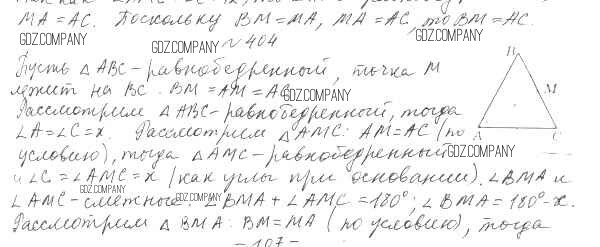 MA = AC. Поскольку BM = MA, MA = AC, то BM = AC.
GDZ.COMPANY
GDZ.COMPANY
GDZ.COMPANY
№ 404
Пусть △ ABC – равнобедренный, точка M
лежит на BC. BM = AM = AC
GDZ.COMPANY
Рассмотрим △ ABC – равнобедренный, тогда
∠A = ∠C = x. Рассмотрим △ AMC: AM = AC (по
условию), тогда △ AMC – равнобедренный
GDZ.COMPANY
и ∠C = ∠AMC = x (как углы при основании). ∠BMA и
GDZ.COMPANY
GDZ.COMPANY
∠AMC – смежные: ∠BMA + ∠AMC = 180°; ∠BMA = 180° - x.
Рассмотрим △ BMA: BM = MA (по условию), тогда
– 107 –
B
M
A
C